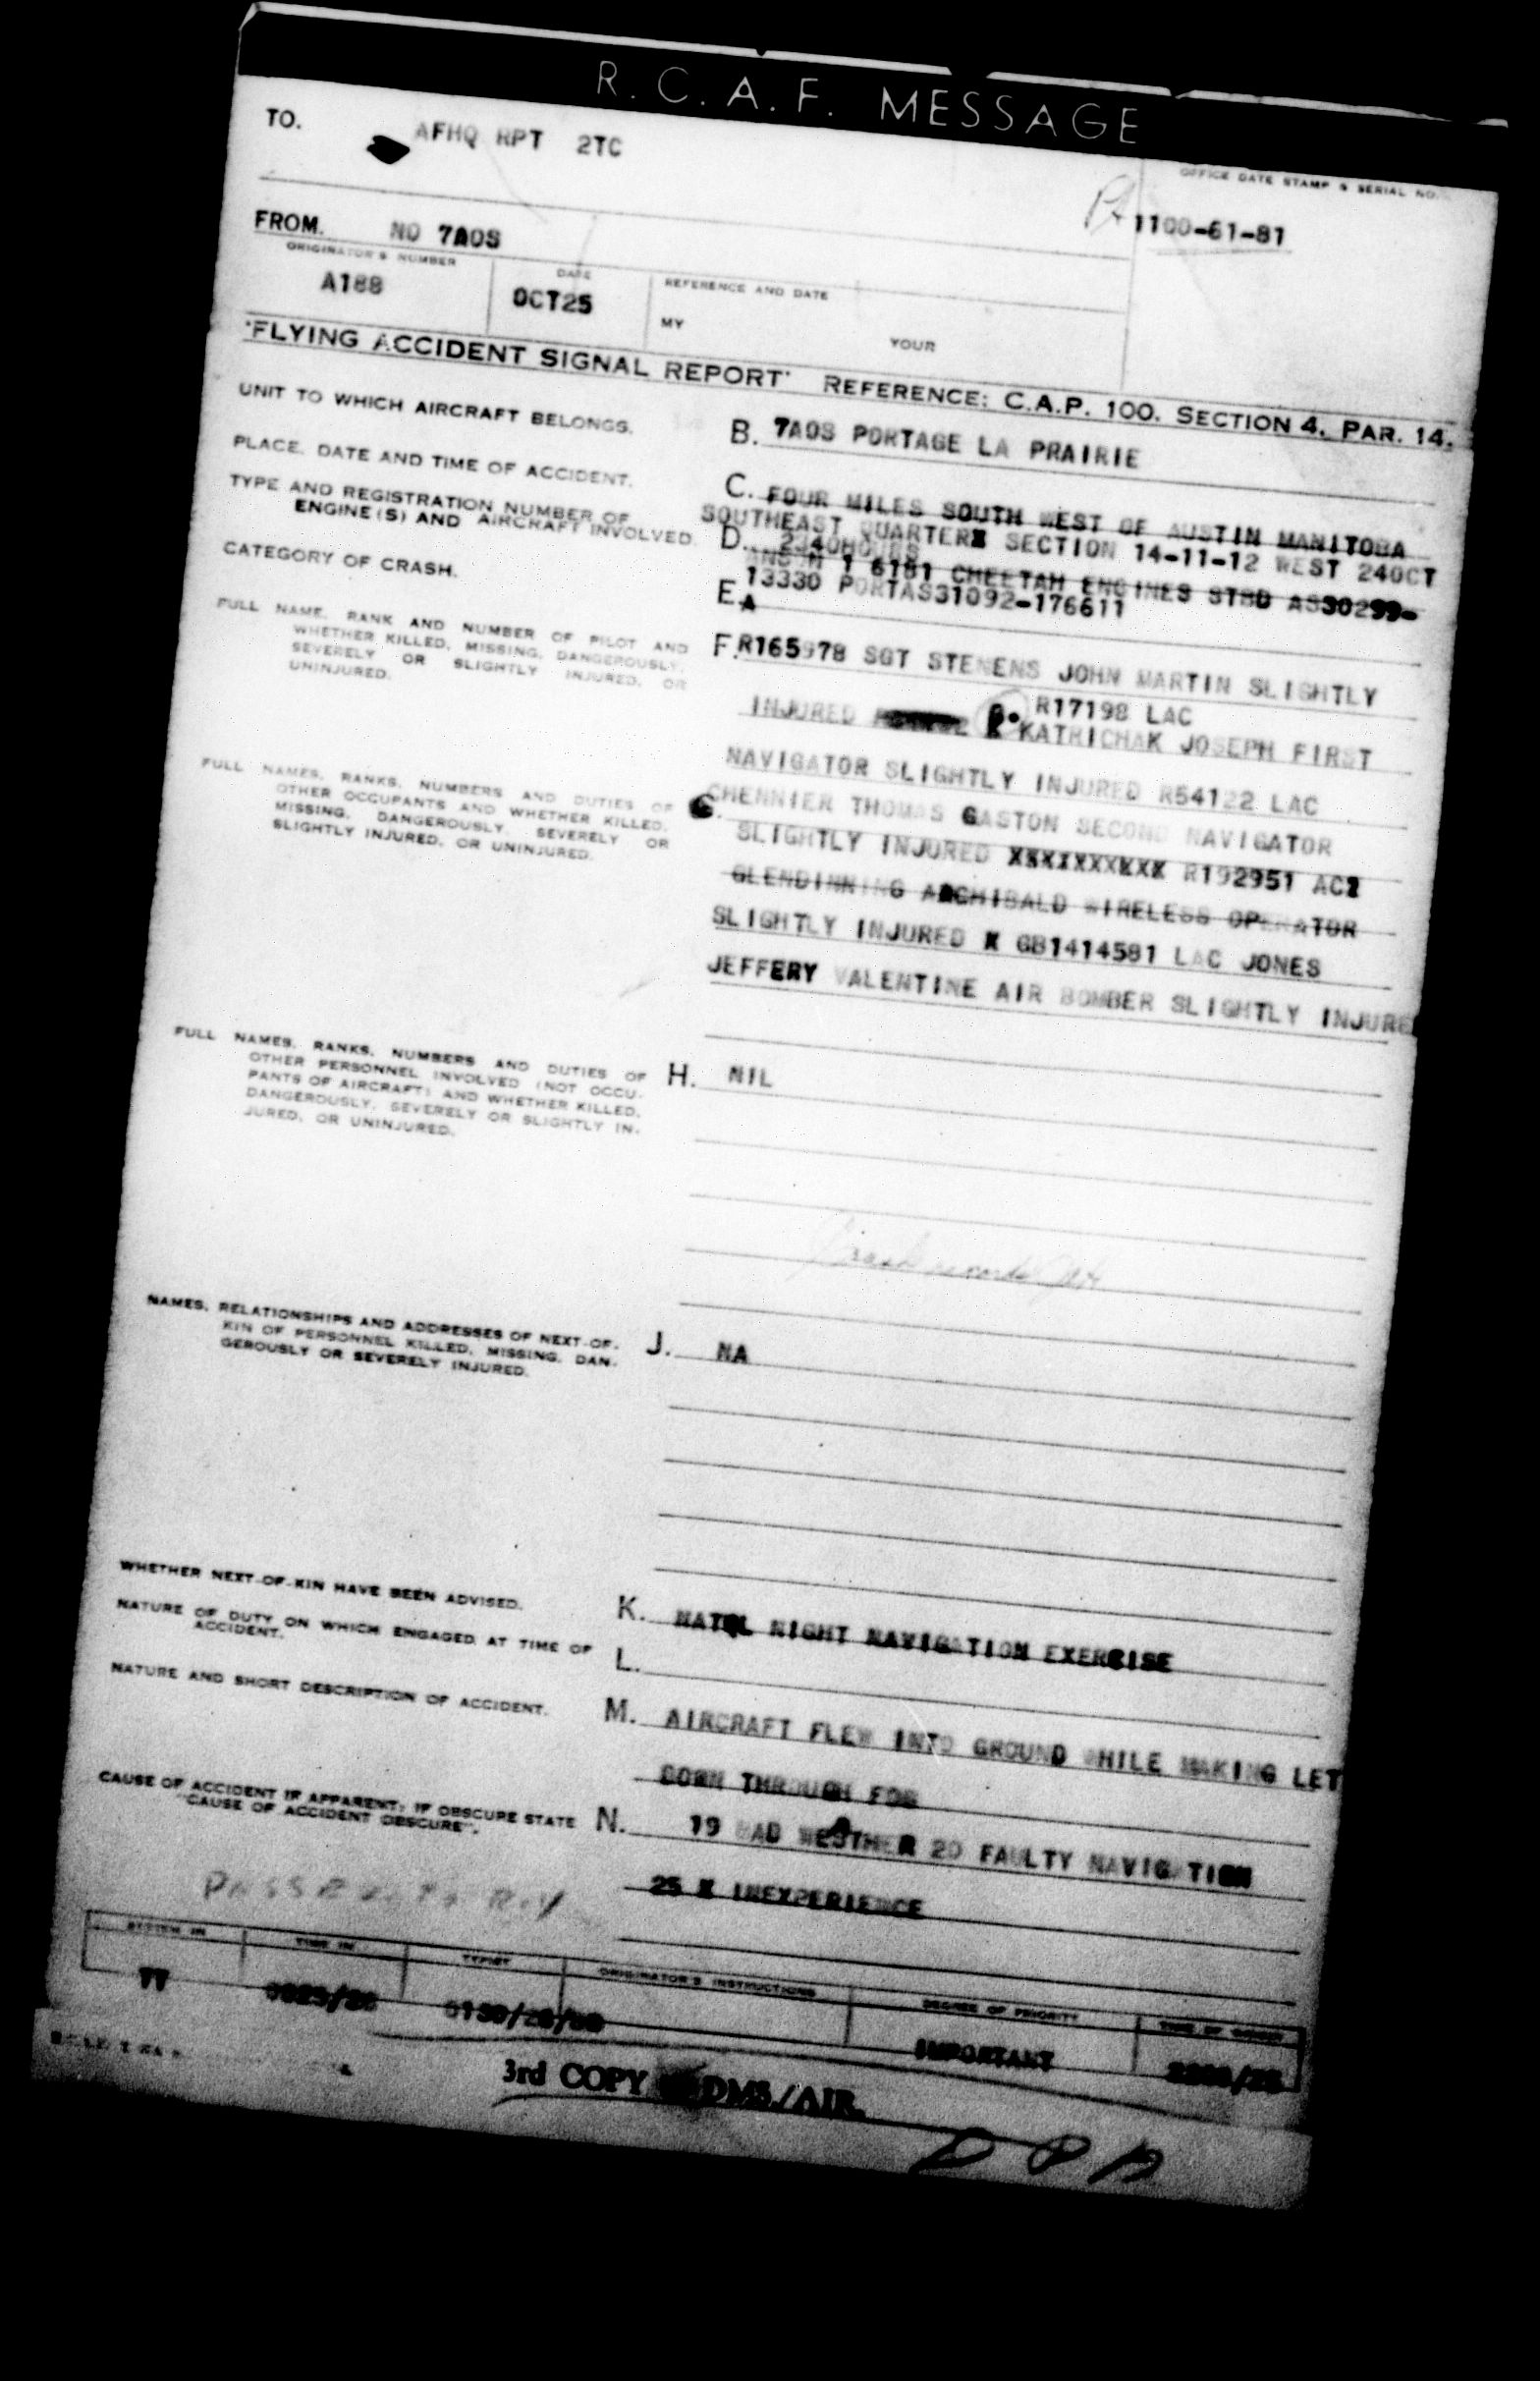 R.C.A.F. MESSAGE
TO. AFHQ RPT 2TC
OFFICE DATE STAMP & SERIAL NO.
1100-61-81
FROM. NO 7AOS
ORIGINATOR'S NUMBER
DATE
REFERENCE AND DATE
A188
OCT25
MY
YOUR
"FLYING ACCIDENT SIGNAL REPORT" REFERENCE: C.A.P. 100. SECTION 4. PAR. 14.
UNIT TO WHICH AIRCRAFT BELONGS.
B. 7AOS PORTAGE LA PRAIRIE
PLACE, DATE AND TIME OF ACCIDENT.
C. FOUR MILES SOUTH WEST OF AUSTIN MANITOBA
SOUTHEAST QUARTERX SECTION 14-11-12 WEST 24OCT
2340HOURS
TYPE AND REGISTRATION NUMBER OF
ENGINE(S) AND AIRCRAFT INVOLVED.
D.
ANSON 1 6181 CHEETAH ENGINES STBD AS30299-
13330 PORTAS31092-176611
CATEGORY OF CRASH.
E. A
FULL NAME, RANK AND NUMBER OF PILOT AND
WHETHER KILLED, MISSING, DANGEROUSLY,
SEVERELY OR SLIGHTLY INJURED, OR
UNINJURED.
F. R165978 SGT STENENS JOHN MARTIN SLIGHTLY
INJURED G. R17198 LAC
KATRICHAK JOSEPH FIRST
NAVIGATOR SLIGHTLY INJURED R54122 LAC
FULL NAMES, RANKS, NUMBERS AND DUTIES OF
OTHER OCCUPANTS AND WHETHER KILLED,
MISSING, DANGEROUSLY, SEVERELY OR
SLIGHTLY INJURED, OR UNINJURED.
G. CHENNIER THOMAS GASTON SECOND NAVIGATOR
SLIGHTLY INJURED R192951 AC2
GLENDINNING ARCHIBALD WIRELESS OPERATOR
SLIGHTLY INJURED X GB1414581 LAC JONES
JEFFERY VALENTINE AIR BOMBER SLIGHTLY INJURE
FULL NAMES, RANKS, NUMBERS AND DUTIES OF
OTHER PERSONNEL INVOLVED (NOT OCCU-
PANTS OF AIRCRAFT) AND WHETHER KILLED,
DANGEROUSLY, SEVERELY OR SLIGHTLY IN-
JURED, OR UNINJURED.
H. NIL
Crash records
NAMES, RELATIONSHIPS AND ADDRESSES OF NEXT-OF-
KIN OF PERSONNEL KILLED, MISSING, DAN-
GEROUSLY OR SEVERELY INJURED.
J. NA
WHETHER NEXT-OF-KIN HAVE BEEN ADVISED.
K. NATXL NIGHT NAVIGATION EXERCISE
NATURE OF DUTY ON WHICH ENGAGED AT TIME OF
ACCIDENT.
L.
NATURE AND SHORT DESCRIPTION OF ACCIDENT.
M. AIRCRAFT FLEW INTO GROUND WHILE MAKING LET
DOWN THROUGH FOG
CAUSE OF ACCIDENT IF APPARENT; IF OBSCURE STATE
"CAUSE OF ACCIDENT OBSCURE".
N. 19 BAD WEATHER 20 FAULTY NAVIGATION
25 X INEXPERIENCE
SYSTEM IN
TIME IN
TYPIST
ORIGINATOR'S INSTRUCTIONS
DEGREE OF PRIORITY
TIME OF ORIGIN
TT
IMPORTANT
3rd COPY DMS/AIR.